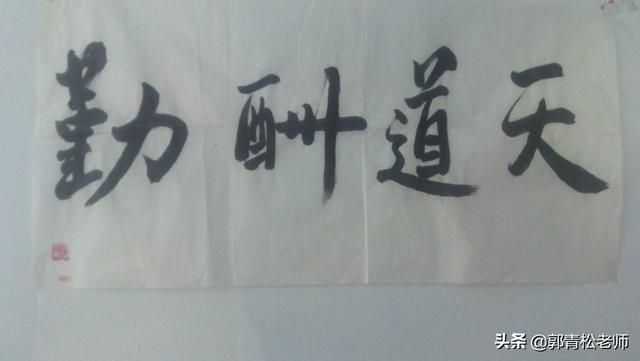 天道酬勤
头条 @郭青松老师